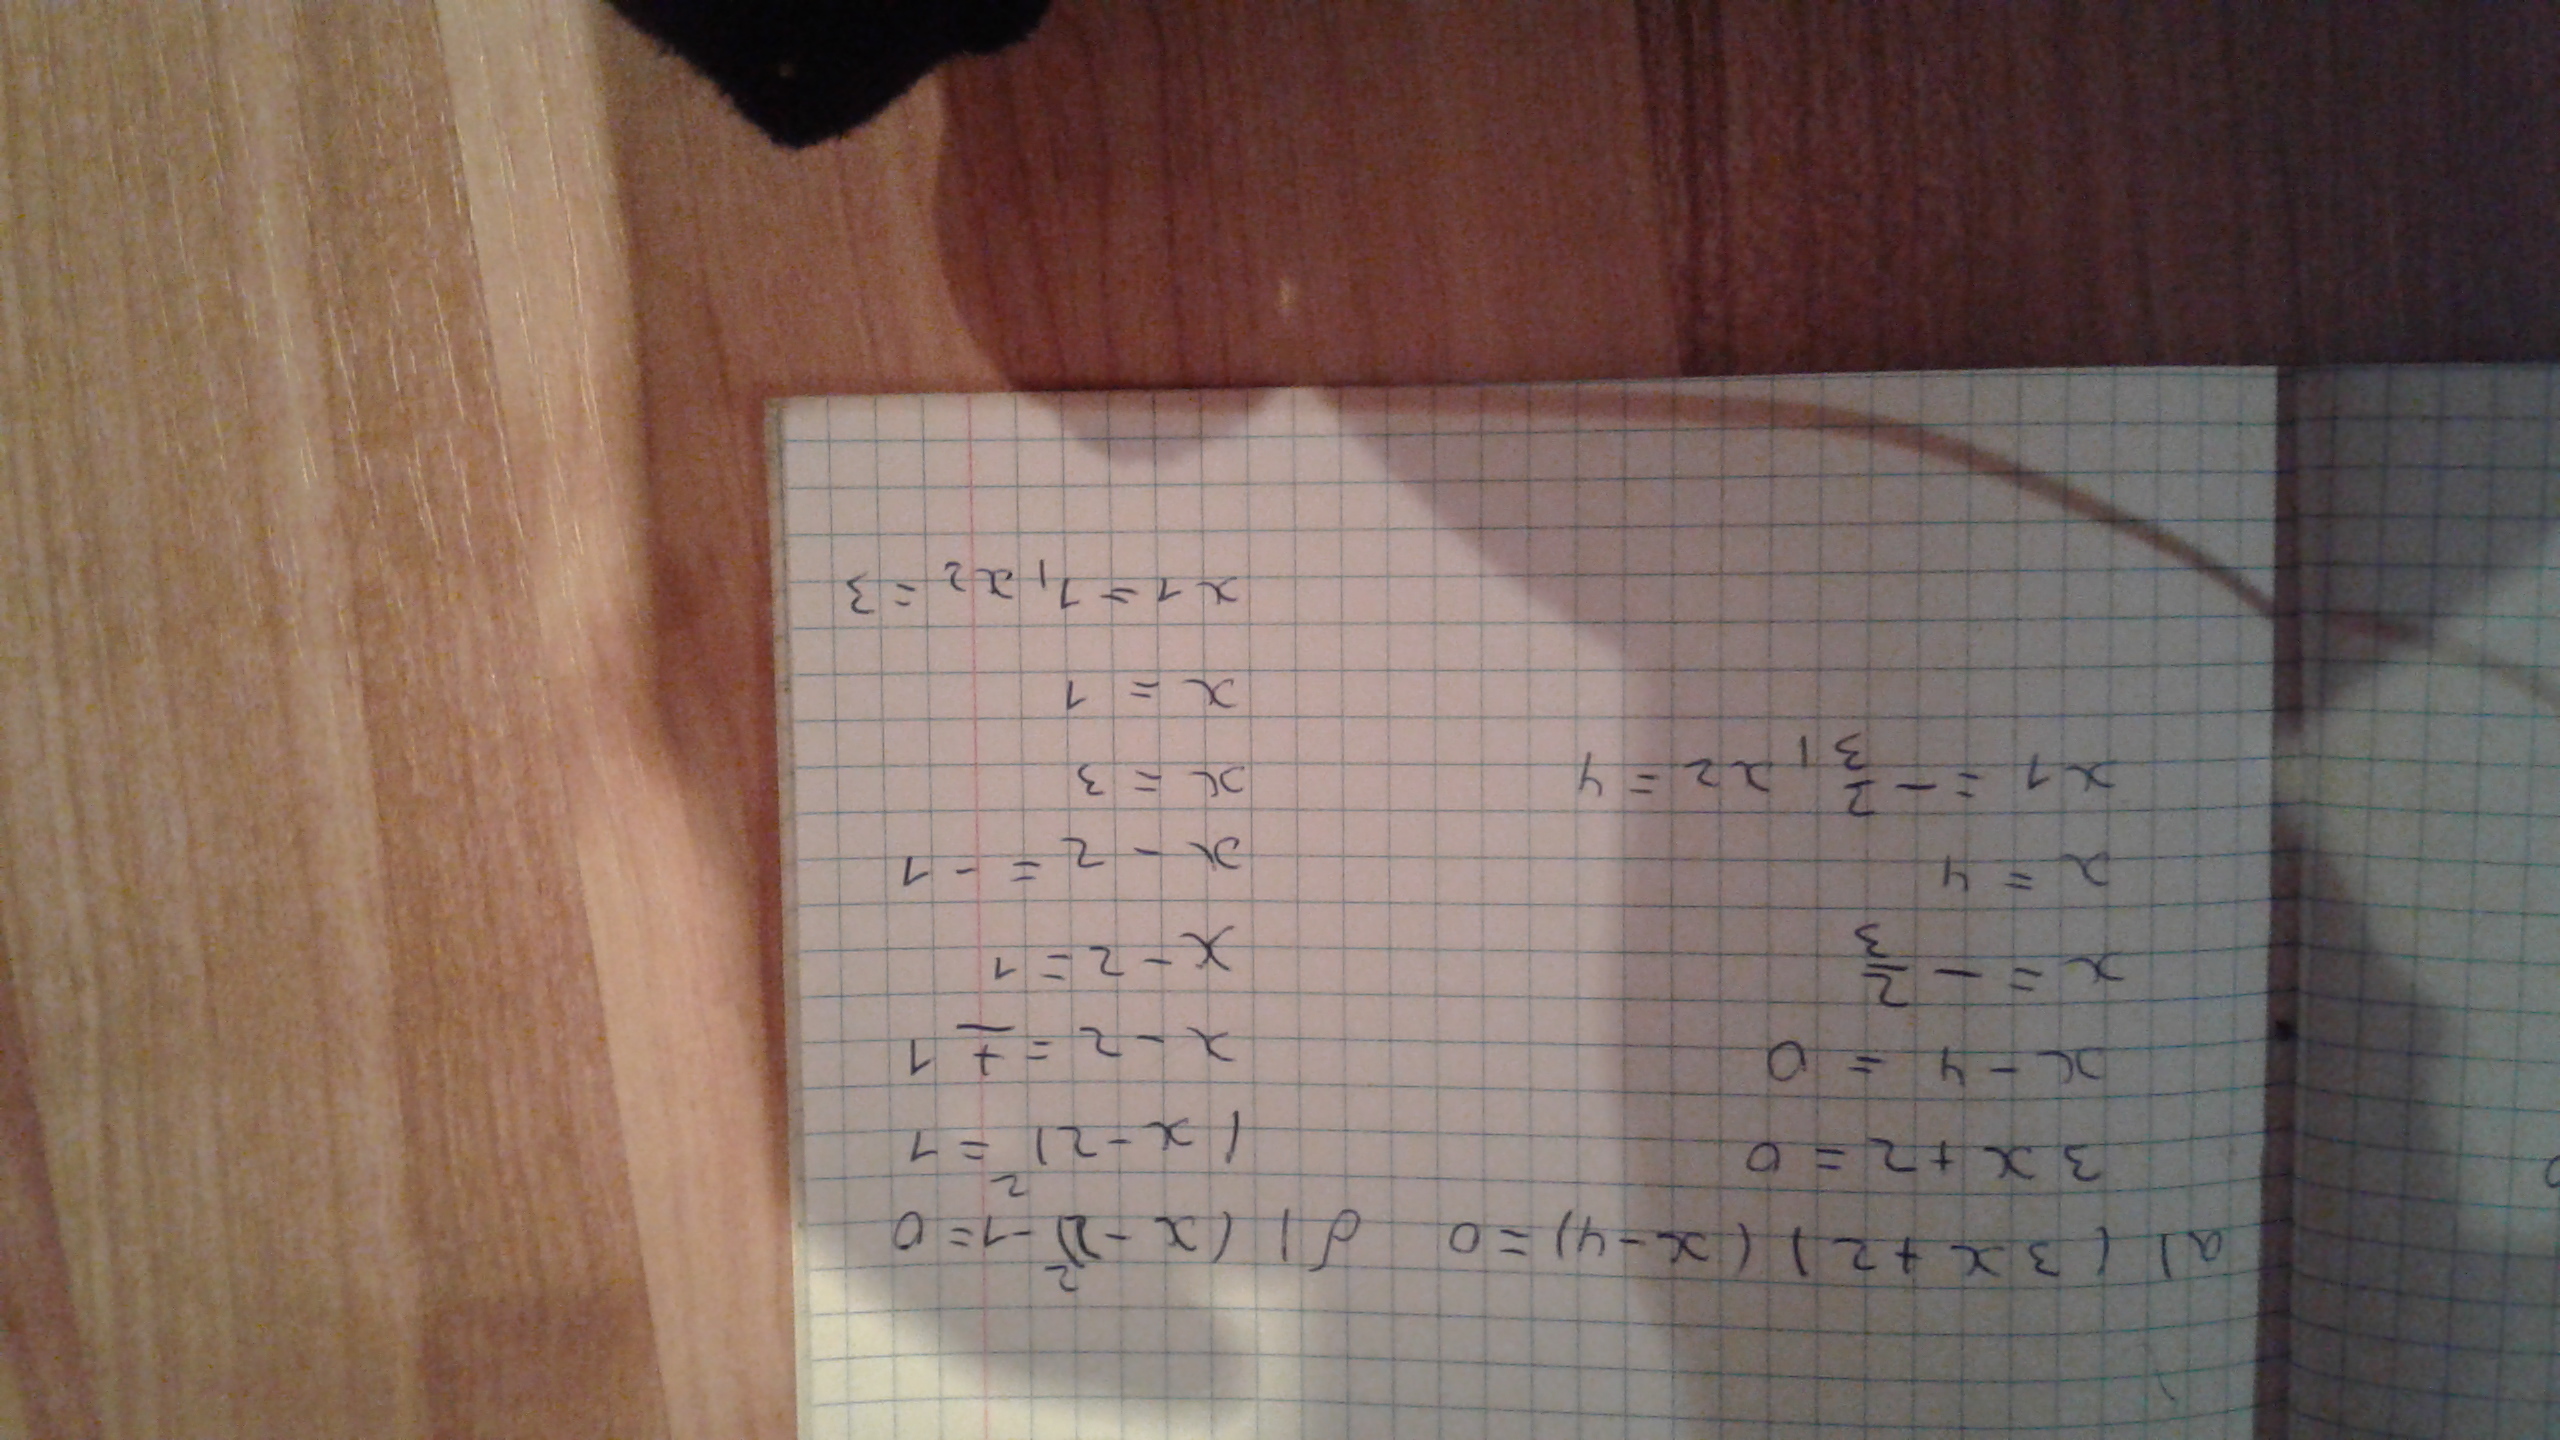 а) (3x+2)(x-4)=0
3x+2=0
x-4=0
x=-2/3
x=4
x1=-2/3, x2=4
б) (x-2)²-1=0
(x-2)²=1
x-2=±1
x-2=1
x-2=-1
x=3
x=1
x1=1, x2=3